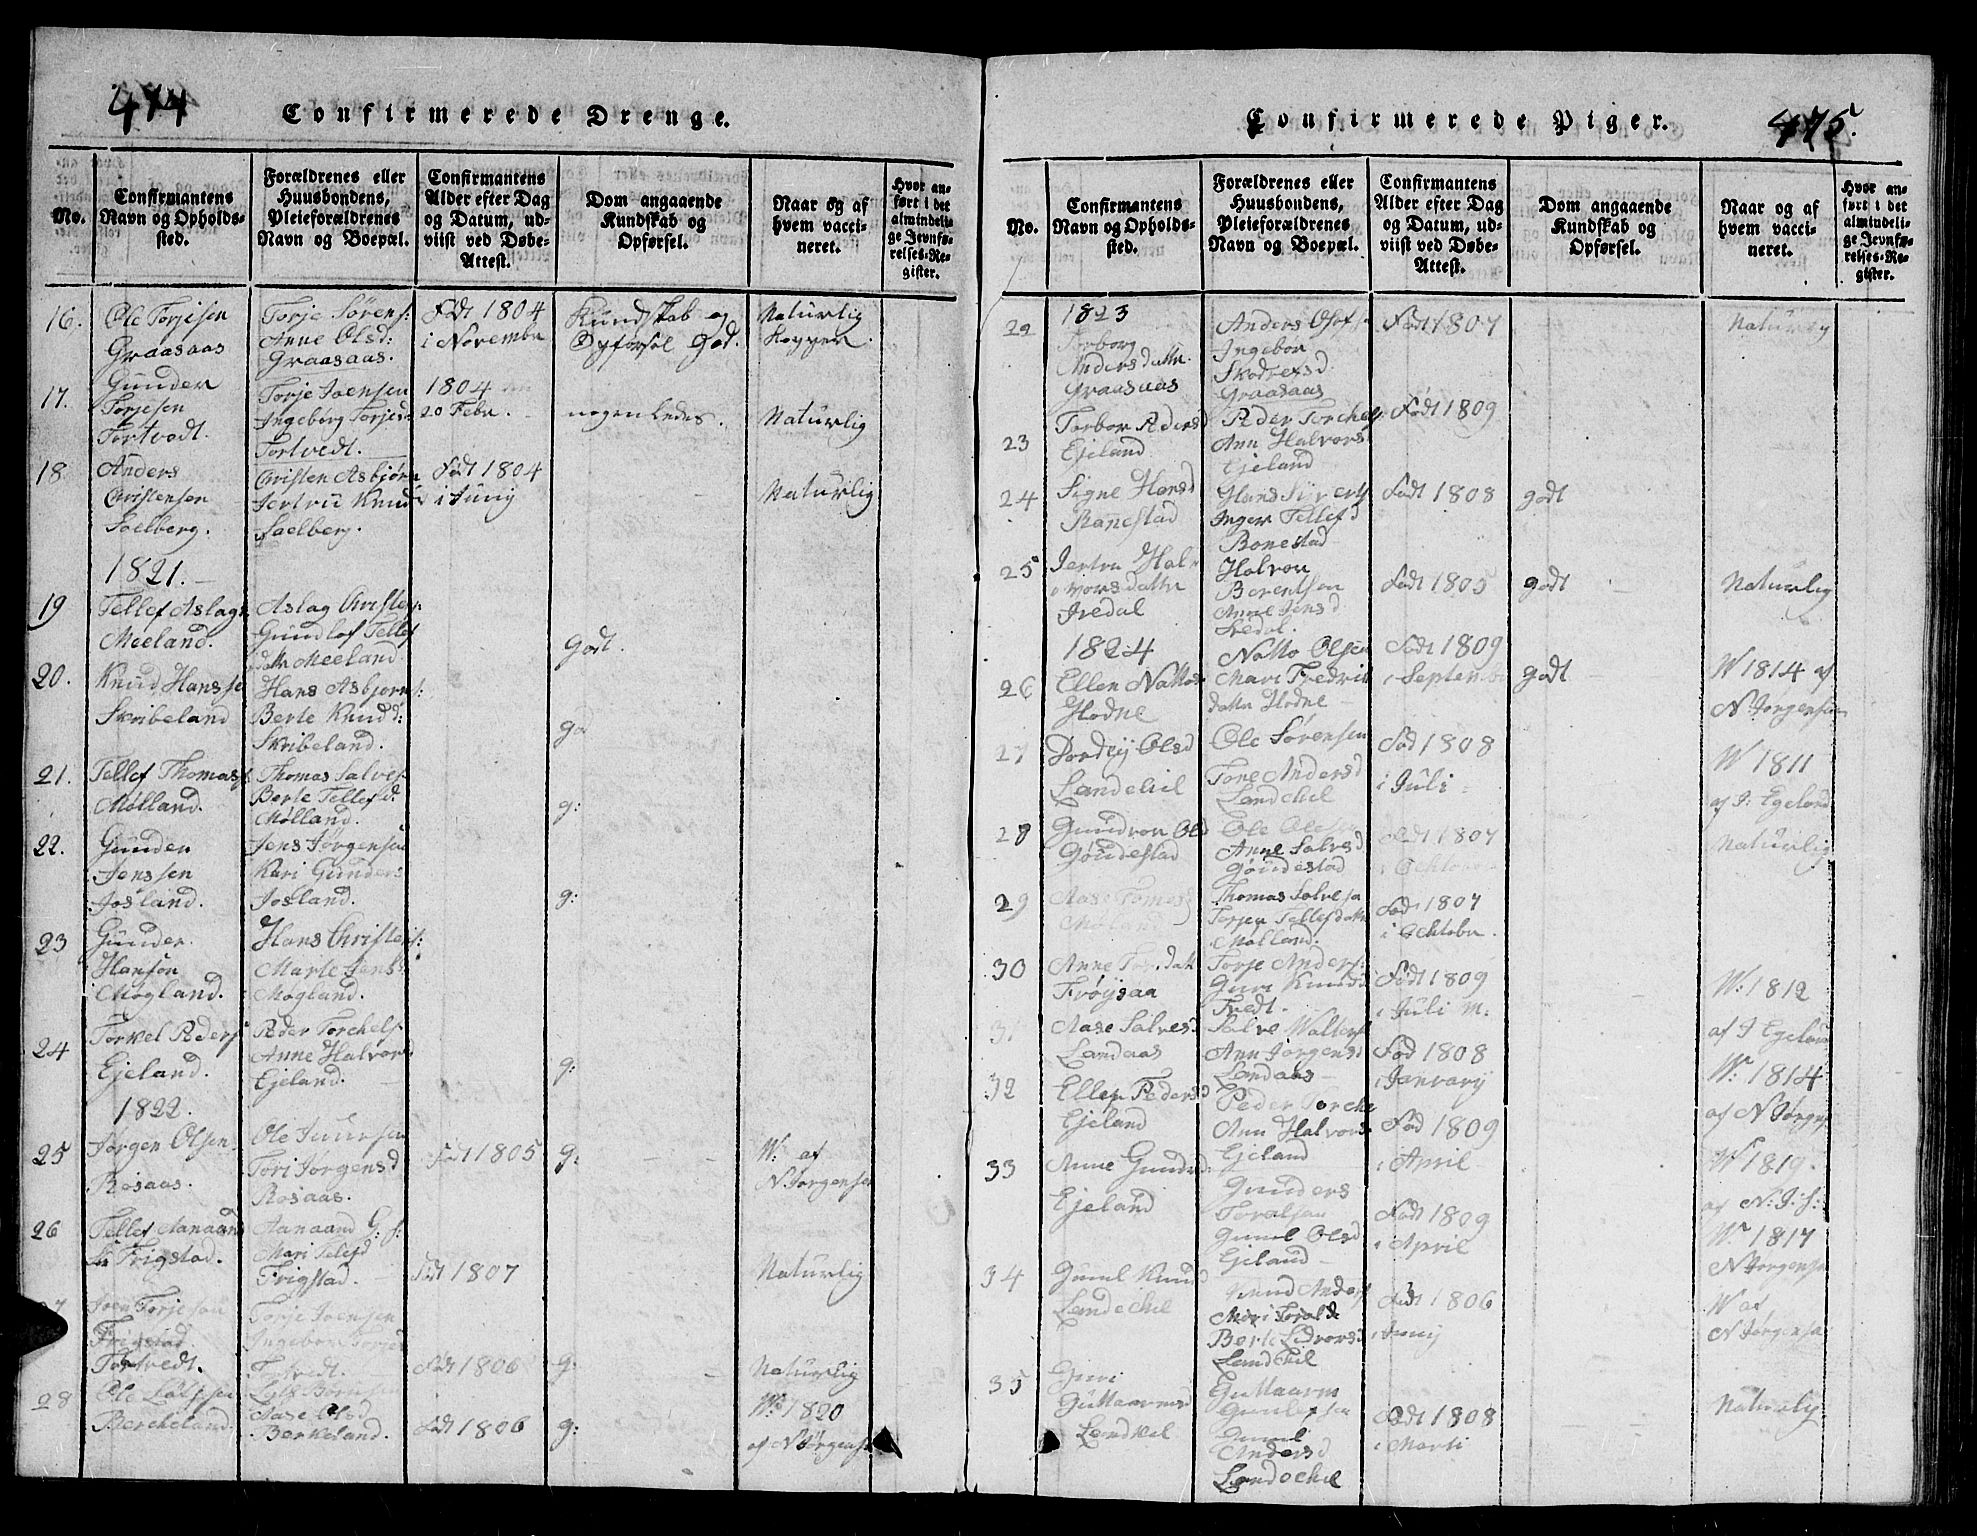 474
Confirmerede Drenge.
No.
Confirmantens
Navn og Opholds-
sted.
Forældrenes eller
Huusbondens,
Pleieforældrenes
Navn og Boepæl.
Confirmantens
Alder efter Dag
og Datum, ud-
viist ved Døbe-
Attest.
Dom angaaende
Kundskab og
Opførsel.
Naar og af
hvem vacci-
neret.
Hvor an-
ført i det
almindeli-
ge Jevnfø-
relses-Re-
gister.
16.
Ole Torjesen
Graasaas
Torje Sörens:
Anne Olsd:
Graasaas.
Födt 1804
i Novembr
Kundskab og
Opförsel God.
Naturlig
Kopper.
17.
Gunder
Torjesen
Tortvedt.
Torje Joensen
Ingebörg Torjed:
Tortvedt.
1804
20 Febr.
nogenledes.
Naturlig
18
Anders
Christensen
Saelberg.
Christen Asbjørn
Jertrü Knud
Saelberg.
Födt 1804
i Junij
Naturlig
1821.
19
Tellef Aslags
Meeland.
Aslag Christens:
Gundlof Tellef
datr Meeland.
Godt.
20.
Knud Hanss
Skribeland
Hans Asbjorns:
Berte Knudd:
Skribeland.
God
21.
Tellef Thomas
Mölland.
Thomas Salves
Berte Tellefd:
Mölland.
g:
22.
Gunder
Jenssen
Josland.
Jens Jörgensen
Kari Gunders
Josland.
g:
23
Gunder
Hansøn
Mögland.
Hans Christens:
Marte Jens
Mögland.
24
Torkel Peders
Ejeland.
Peder Torchels
Anne Halvors
Ejeland.
g:
1822.
25
Jörgen Olsen
Rosaas.
Ole
Tori Jörgensd
Rosaas.
Födt 1805
g:
W: af
N Jörgensen
26
Tellef Aanaan
Frigstad.
Aanaand G: s:
Mari Telefd
Frigstad.
Födt 1807
Naturlig
Joen Torjesen
Frigstad
Tortvedt.
Torje Joensen
Ingebor Torje
Tortvedt.
Födt 1806
g:
Naturlig
28
Ole
Bercheland.
Aase Olsd
Berkeland.
Födt 1806
g:
W: 1820
af N Jörgens
475.
Confirmerede Piger.
No.
Confirmantens
Navn og Opholds-
sted.
Forældrenes eller
Huusbondens,
Pleieforældrenes
Navn og Boepæl.
Confirmantens
Alder efter Dag
og Datum, ud-
viist ved Døbe-
Attest.
Dom angaaende
Kundskab og
Opførsel.
Naar og af
hvem vacci-
neret.
Hvor an-
ført i det
almindeli-
ge Jevnfø-
relses-Re-
gister.
1823
22
Torborg
Andersdattr
Graasaas
Anders
Ingebor
Graasaas
Födt 1807
Naturlig
23
Torbor Pedersd
Ejeland
Peder Torchels
Ann Halvors
Ejeland
Födt 1809
24
Signe Hansd
Hans Sivertsen
Inger Tellefd
Bonestad
Födt 1808
godt
25
Jertru Hal-
vorsdattr
Iredal
Halvor
Berentsen
Anne Jensd
Iredal.
Födt 1805
godt
Naturlig
1824
26
Ellen Nattos
Hodne
Natto Olsen
Mari Fredrik
datter Hodne
Födt 1809
i Septembr
godt
W 1814 af
N Jörgensen
27
Dordey Olsd
Landekil
Ole Sörensen
Tone Andersd
Landekil
Föd 1808
i Juli
W 1811
af J: Egeland
28
Gundvor Olsd
Göudestad
Ole Olesen
Anne Salvesd
Göudestad
Födt 1807
i Octobr
Naturlig
29
Aase Tomasd
Möland
Thomas Salvesen
Torjer Tellefdattr
Mölland.
Föd 1807
i Octobr.
30
Anne Tordatt
Fröysaa
Torje Anders:
Guri Knudsd
Tvedt.
Födt 1809
i Juli M:
W: 1812
af J Egeland
31
Aase Salvesd
Landaas
Salve Walters
Ann Jörgensd
Landaas
Föd 1808
i January
W: 1814
af N Jörgens
32
Ellen Pedersd
Ejeland
Peder Torche
Ann Halvors
Ejeland
Föd 1809
i April
W 1819.
af N: J: s:
33
Anne Gundersd
Ejeland
Gunders
Toralsen
Gunil Olsd
Ejeland
Födt 1809
i April
W: 1817
N Jörgensen
34
Gunil Knud
Landechil
Knud Anders
Mari Torald
Berte
Landkil
Födt 1806
i Junij
W af
N Jörgensen
35
Guri
Guttaarmsd
Landkil
Guttaarm
Gunlefsen
Gunil
Andersd
Landechil
Födt 1808
i Marti
Naturlig